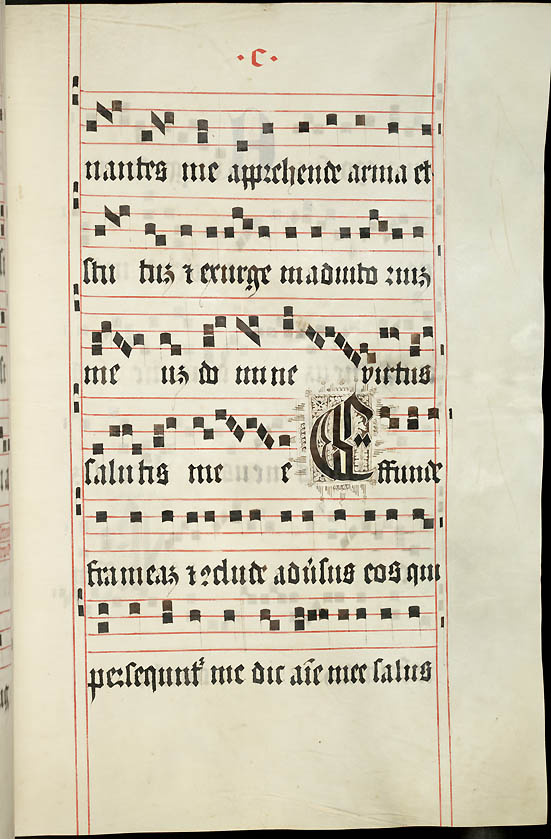 ·C·
nantes me apprehende arma et
scu tuz ⁊ exurge in adiuto riuz
me uz do mi ne virtus
salutis me e Effunde
frameaz ⁊ ꝯclude adūsus eos qui
persequnt᷑ me dic aīe mee salus